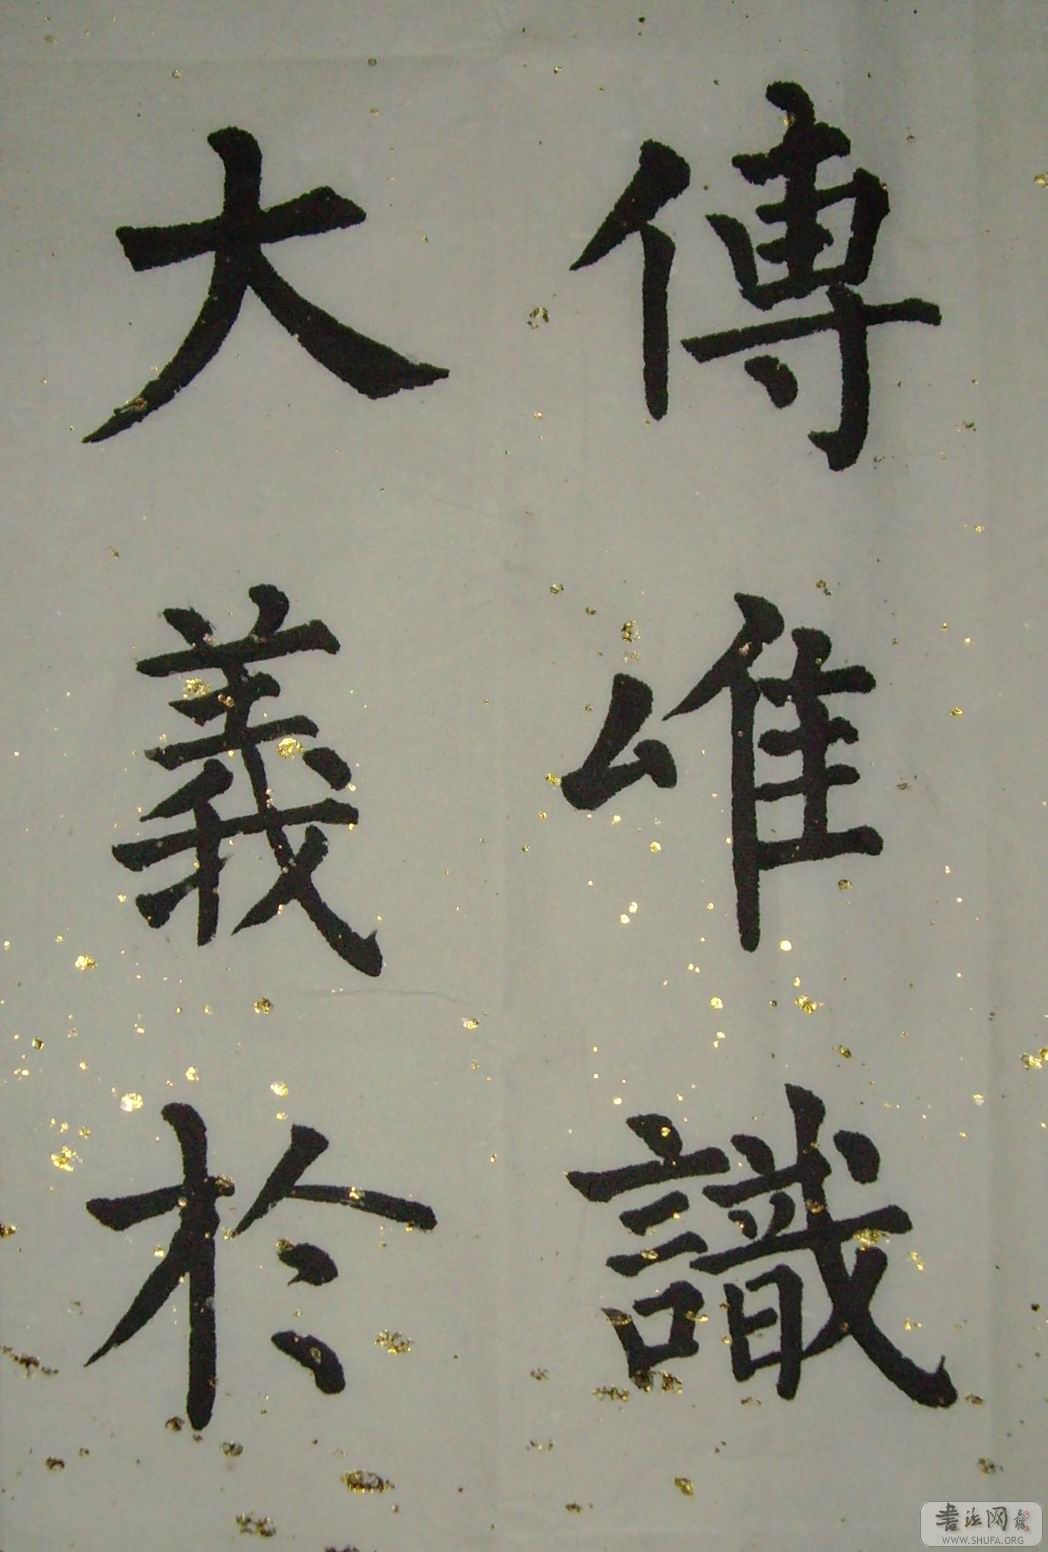 傳唯識
大義於
書法网
WWW.SHUFA.ORG